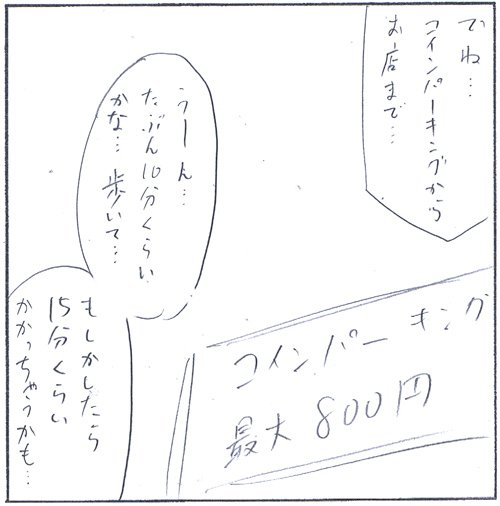 でね…
コインパーキングから
お店まで…
うーん…
たぶん10分くらい
かな…歩いて…
もしかしたら
15分くらい
かかっちゃうかも…
コインパーキング
最大800円